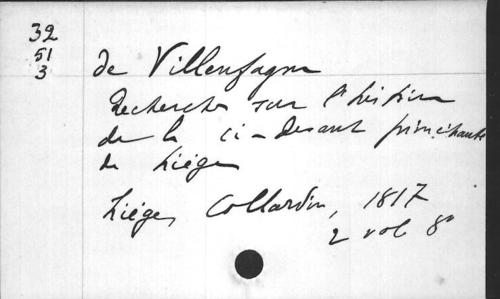 32
51
3
de Villenfagne
Recherches sur l'histoire
de la ci-devant principauté
de Liége
Liége, Collardin, 1817
2 vol 8°